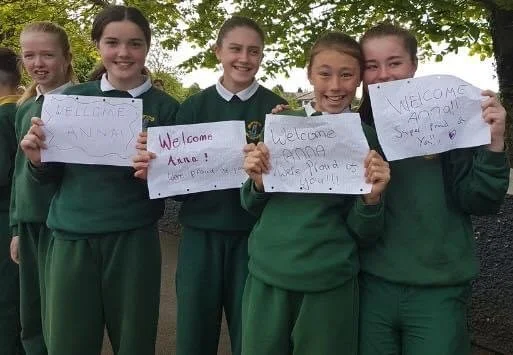 WELCOME
ANNA!
Welcome
Anna!
We're Proud of
WELCOME
ANNA
We're Proud of
You!!!
WELCOME
ANNA!!
Super Proud of
You!!